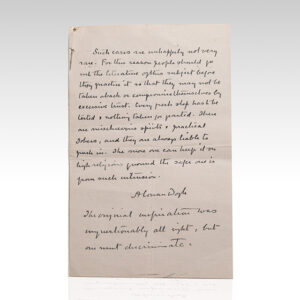 Such cases are unhappily not very
rare. For this reason people should go
into the literature of this subject before
they practice it so that they may not
be taken aback or compromise themselves by
excessive trust. Every fresh step has to be
tested & nothing taken for granted. There
are mischievous spirits & practical
Jokers, and they are always liable to
push in. The more one can keep it on
high religious ground the safer one is
from such intrusion.
A Conan Doyle
The original inspiration was
unquestionably all right, but
one must discriminate.